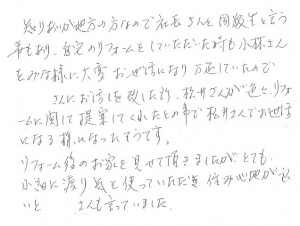 知りあいが地方の方なので社長さんと同級生と言う
事もあり、自宅のリフォームをしていただいた時も小林さん
をみな様に大変お世話になり万足していたので
さんにお話しを致した所、松井さんが色々、リフォ
ームに関して提案してくれたとの事で松井さんでお世話
になる様になったそうです。
リフォーム後のお家を見せて頂きましたがとても
小細に渡り気を使っていただき住み心地が良
いと さんも言っていました。